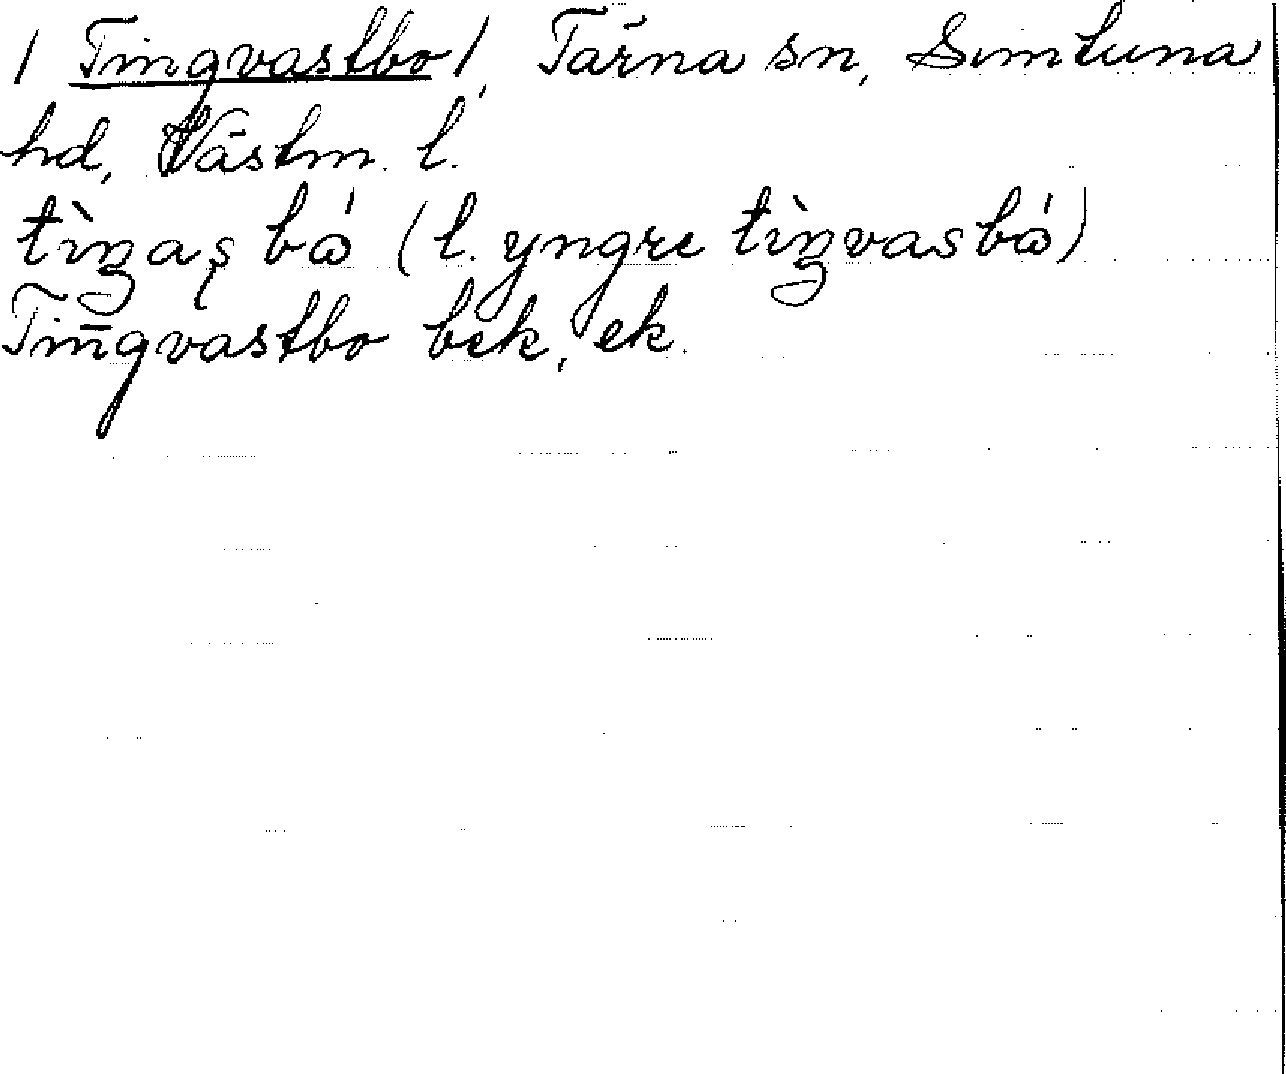 / Tingvastbo /, Tärna sn, Simtuna
hd, Västm. l.
tìŋaʂ bǻ (l. yngre tìŋvasbǻ)
Tingvastbo bek, ek.